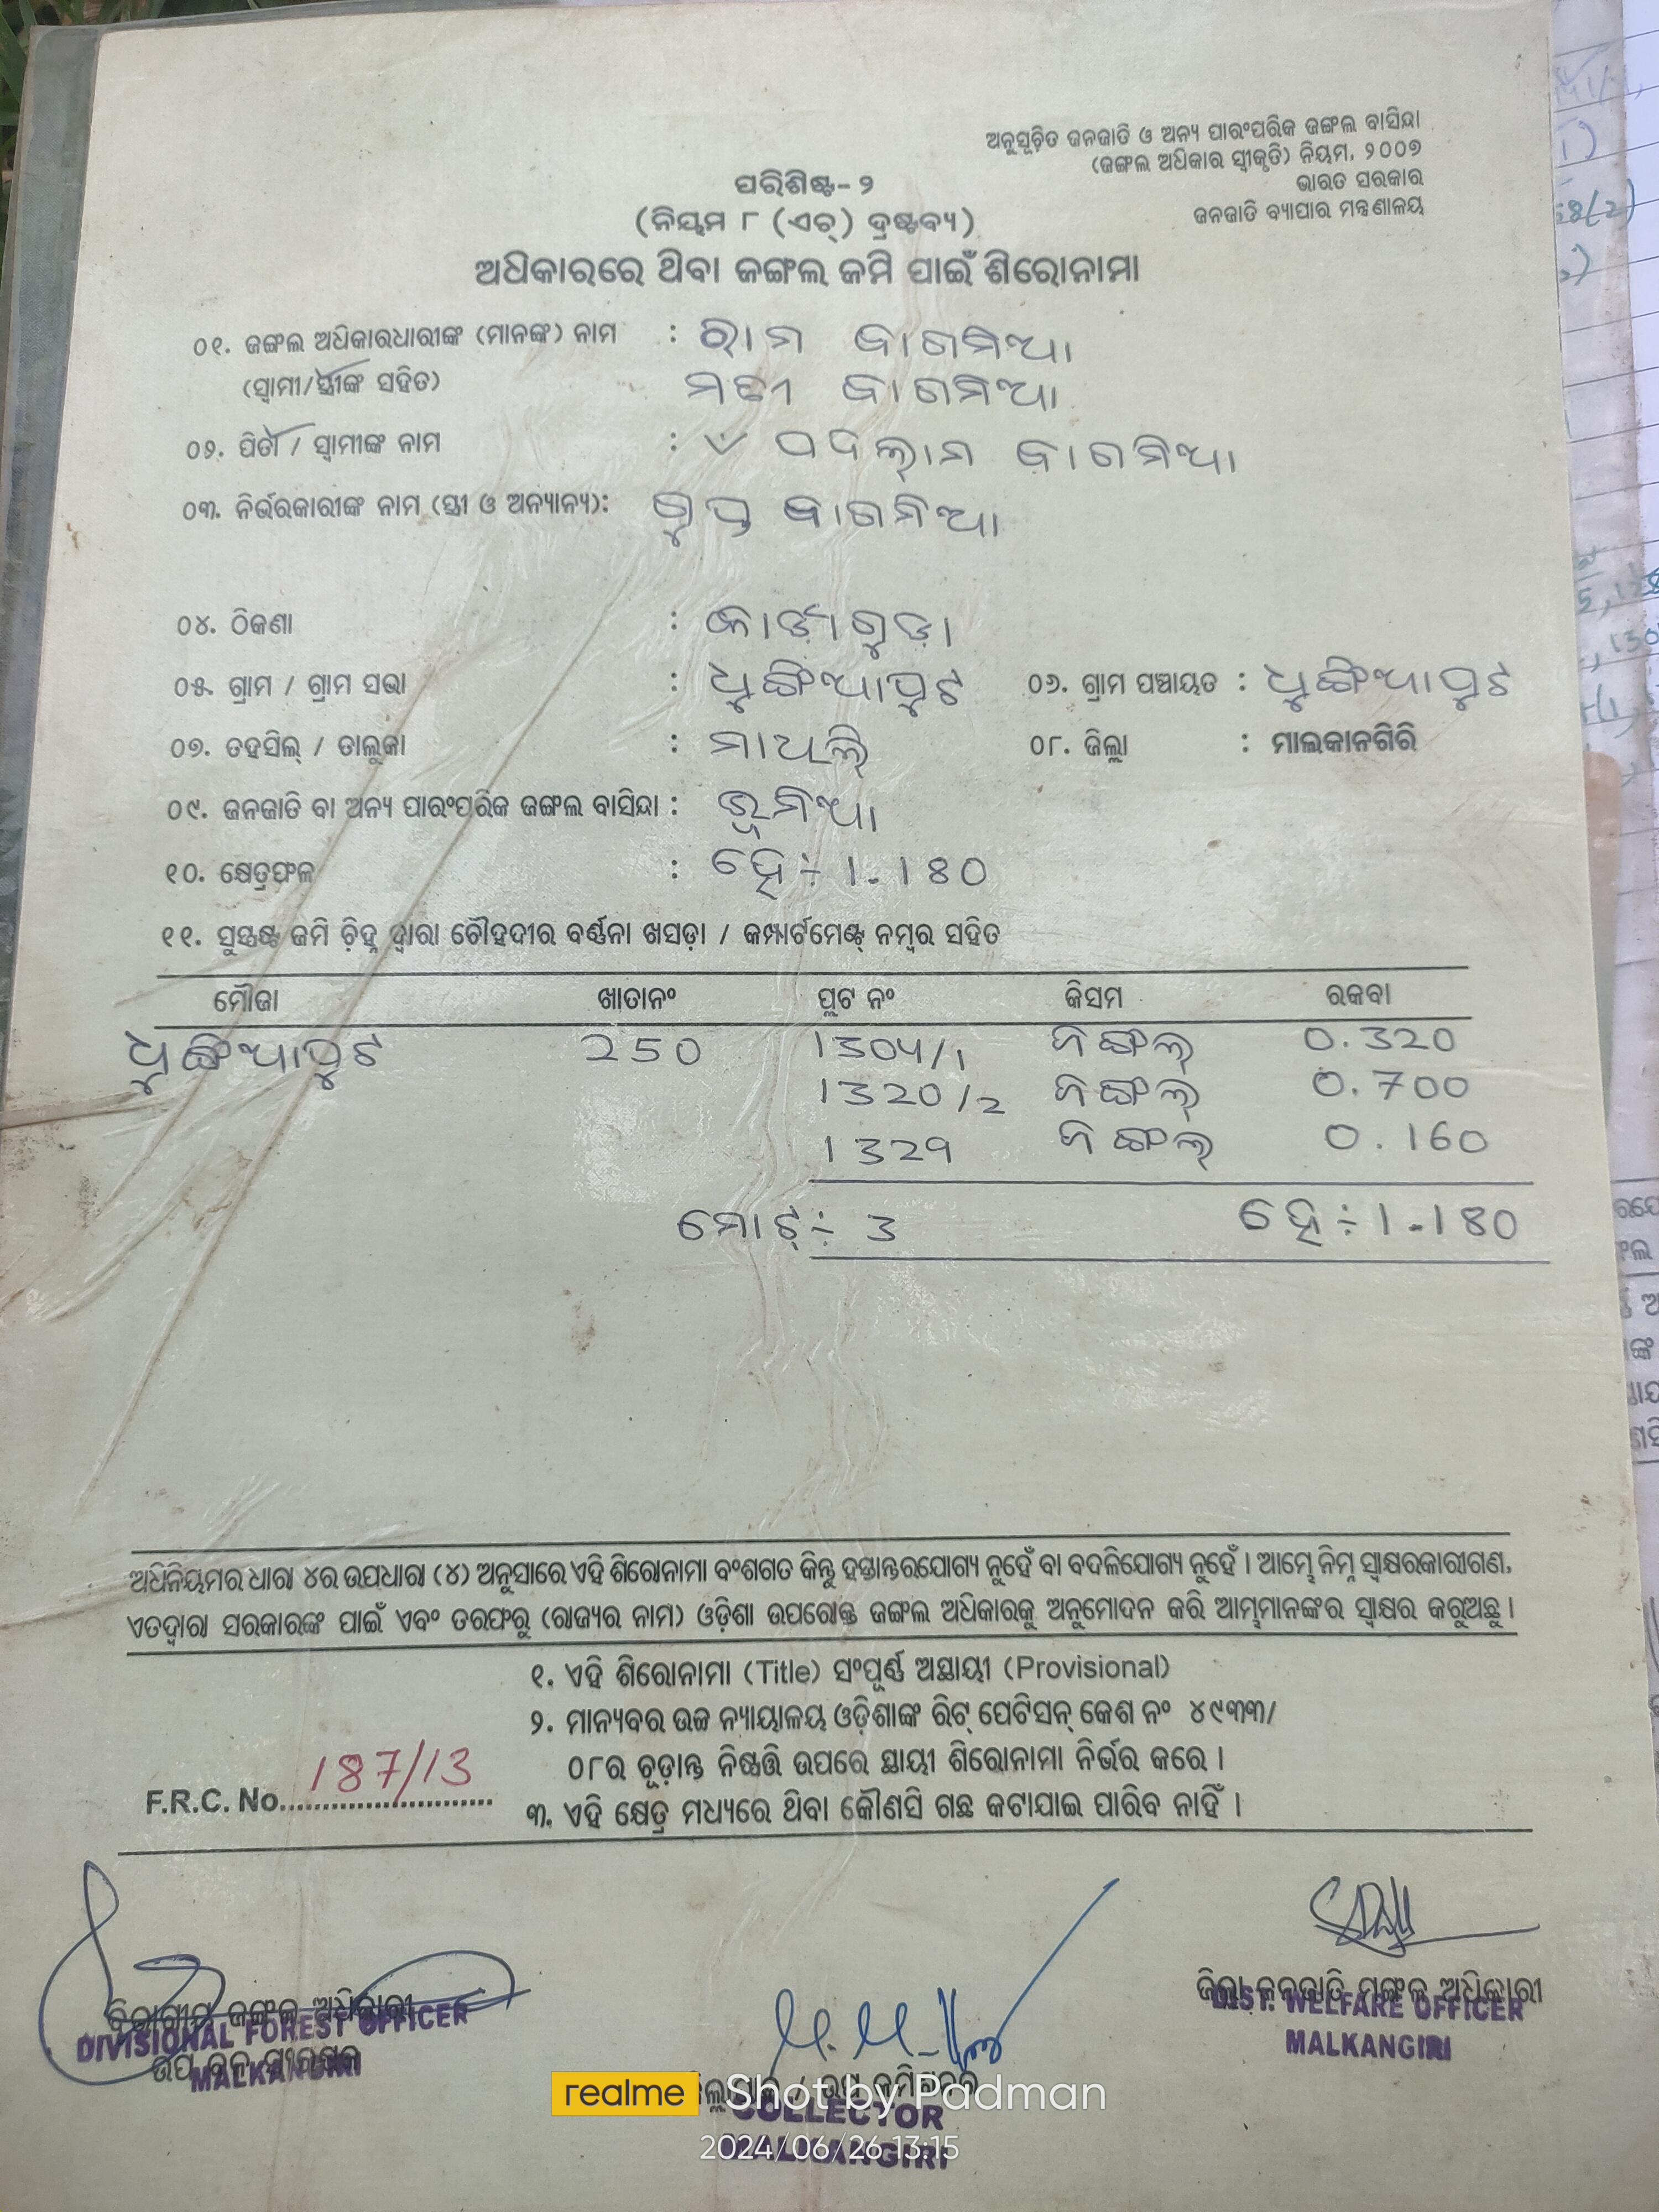 ଅନୁସୂଚିତ ଜନଜାତି ଓ ଅନ୍ୟ ପାରଂପରିକ ଜଙ୍ଗଲ ବାସିନ୍ଦା
(ଜଙ୍ଗଲ ଅଧିକାର ସ୍ୱୀକୃତି) ନିୟମ, ୨୦୦୭
ଭାରତ ସରକାର
ଜନଜାତି ବ୍ୟାପାର ମନ୍ତ୍ରଣାଳୟ
ପରିଶିଷ୍ଟ- ୨
(ନିୟମ ୮ (ଏଚ୍) ଦ୍ରଷ୍ଟବ୍ୟ)
ଅଧିକାରରେ ଥିବା ଜଙ୍ଗଲ ଜମି ପାଇଁ ଶିରୋନାମା
୦୧. ଜଙ୍ଗଲ ଅଧିକାରଧାରୀଙ୍କ (ମାନଙ୍କ) ନାମ : ରାମ ବାଗମିଆ
(ସ୍ୱାମୀ/ସ୍ତ୍ରୀଙ୍କ ସହିତ) ବାଗମିଆ
୦୨. ପିତା / ସ୍ୱାମୀଙ୍କ ନାମ : ବାଗମିଆ
୦୩. ନିର୍ଭରକାରୀଙ୍କ ନାମ (ସ୍ତ୍ରୀ ଓ ଅନ୍ୟାନ୍ୟ): ଗୁପ୍ତ ବାଗମିଆ
୦୪. ଠିକଣା :
୦୫. ଗ୍ରାମ / ଗ୍ରାମ ସଭା : ଧୁଙ୍ଗିଆପୁଟ ୦୬. ଗ୍ରାମ ପଞ୍ଚାୟତ : ଧୁଙ୍ଗିଆପୁଟ
୦୭. ତହସିଲ୍ / ତାଲୁକା : ମାଥିଲି ୦୮. ଜିଲ୍ଲା : ମାଲକାନଗିରି
୦୯. ଜନଜାତି ବା ଅନ୍ୟ ପାରଂପରିକ ଜଙ୍ଗଲ ବାସିନ୍ଦା : ଭୂମିଆ
୧୦. କ୍ଷେତ୍ରଫଳ : ହେ÷ 1.180
୧୧. ସୁସ୍ପଷ୍ଟ ଜମି ଚିହ୍ନ ଦ୍ୱାରା ଚୌହଦୀର ବର୍ଣ୍ଣନା ଖସଡ଼ା / କମ୍ପାର୍ଟମେଣ୍ଟ୍ ନମ୍ବର ସହିତ
ମୌଜା ଖାତାନଂ ପ୍ଲଟ ନଂ କିସମ ରକବା
ଧୁଙ୍ଗିଆପୁଟ 250 1304/1 ଜଙ୍ଗଲ୍ 0.320
1320/2 ଜଙ୍ଗଲ୍ 0.700
1329 ଜଙ୍ଗଲ୍ 0.160
ମୋଟ୍÷ 3 ହେ÷1.180
ଅଧିନିୟମର ଧାରା ୪ର ଉପଧାରା (୪) ଅନୁସାରେ ଏହି ଶିରୋନାମା ବଂଶଗତ କିନ୍ତୁ ହସ୍ତାନ୍ତରଯୋଗ୍ୟ ନୁହେଁ ବା ବଦଳିଯୋଗ୍ୟ ନୁହେଁ । ଆମ୍ଭେ ନିମ୍ନ ସ୍ୱାକ୍ଷରକାରୀଗଣ,
ଏତଦ୍ୱାରା ସରକାରଙ୍କ ପାଇଁ ଏବଂ ତରଫରୁ (ରାଜ୍ୟର ନାମ) ଓଡ଼ିଶା ଉପରୋକ୍ତ ଜଙ୍ଗଲ ଅଧିକାରକୁ ଅନୁମୋଦନ କରି ଆମ୍ଭମାନଙ୍କର ସ୍ୱାକ୍ଷର କରୁଅଛୁ ।
୧. ଏହି ଶିରୋନାମା (Title) ସଂପୂର୍ଣ୍ଣ ଅସ୍ଥାୟୀ (Provisional)
୨. ମାନ୍ୟବର ଉଚ୍ଚ ନ୍ୟାୟାଳୟ ଓଡ଼ିଶାଙ୍କ ରିଟ୍ ପେଟିସନ୍ କେଶ ନଂ ୪୯୩୩/
୦୮ର ଚୂଡ଼ାନ୍ତ ନିଷ୍ପତ୍ତି ଉପରେ ସ୍ଥାୟୀ ଶିରୋନାମା ନିର୍ଭର କରେ ।
F.R.C. No. 187/13
୩. ଏହି କ୍ଷେତ୍ର ମଧ୍ୟରେ ଥିବା କୌଣସି ଗଛ କଟାଯାଇ ପାରିବ ନାହିଁ ।
ବିଭାଗୀୟ ଜଙ୍ଗଲ ଅଧିକାରୀ
DIVISIONAL FOREST OFFICER
MALKANGIRI
ଜିଲ୍ଲା ଜନଜାତି ମଙ୍ଗଳ ଅଧିକାରୀ
DIST. WELFARE OFFICER
MALKANGIRI
realme Shot by Padman
COLLECTOR
2024/06/26 13:15
MALKANGIRI